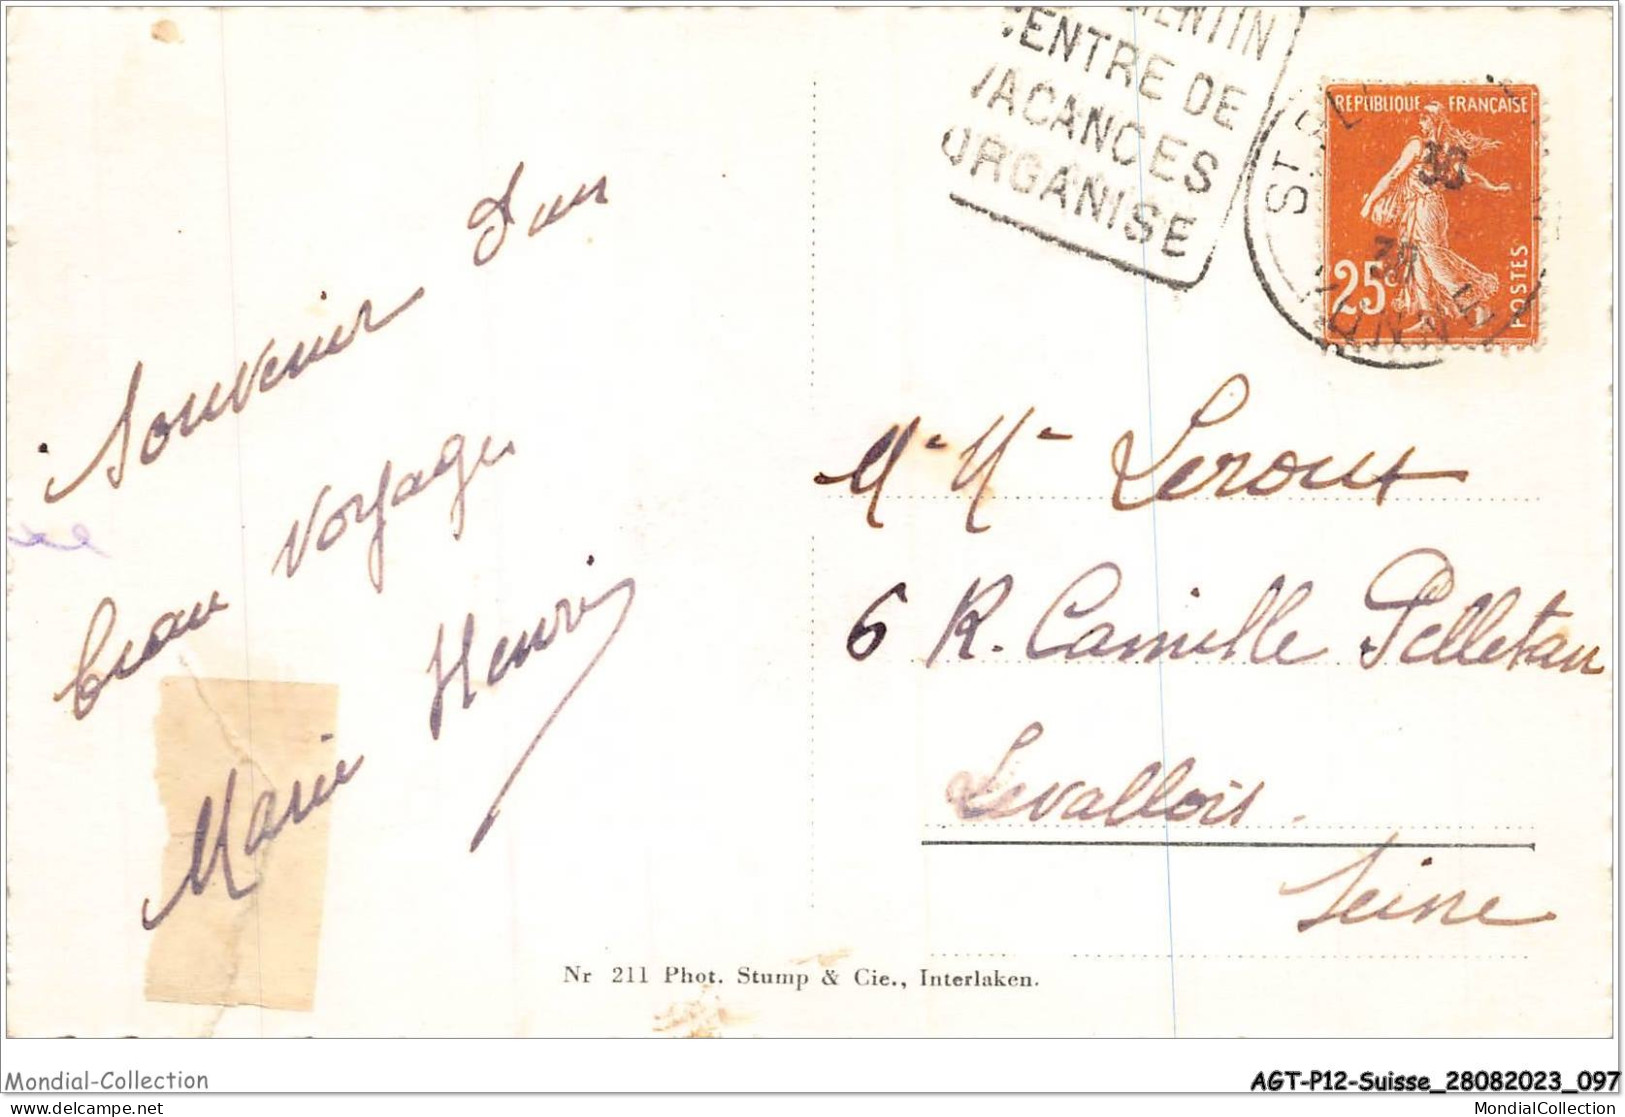 ENTRE DE
VACANCES
ORGANISE
ST
REPUBLIQUE FRANÇAISE
30
25c
POSTES
Souvenir d'un
beau voyage
Marie Henri
Mr Mme Leroux
6 R. Camille Pelletan
Levallois.
Seine
Nr 211 Phot. Stump & Cie., Interlaken.
Mondial-Collection
AGT-P12-Suisse_28082023_097
delcampe.net
MondialCollection